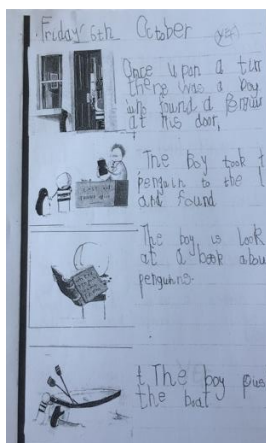 Friday 6th October
Once upon a
there was a boy
who found a
at his door,
The Boy took
penguin to the
and found
The boy is look
at a book
penguins.
t The boy
the boat